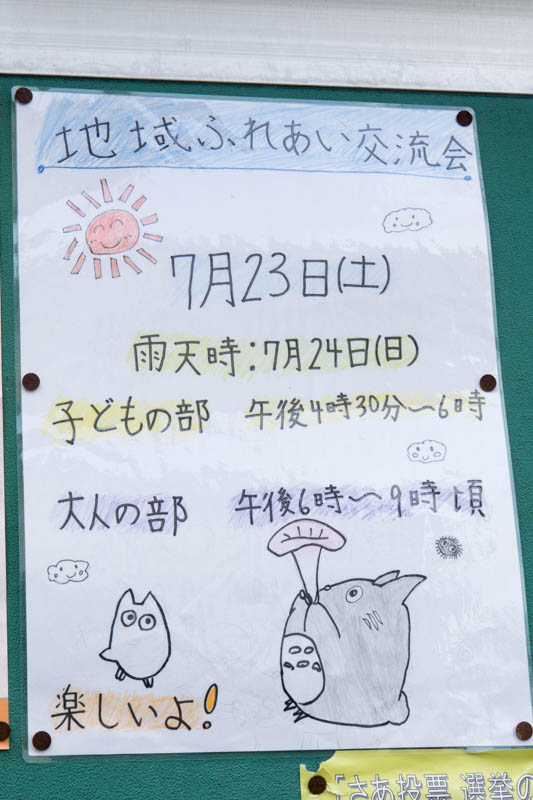 地域ふれあい交流会
7月23日(土)
雨天時:7月24日(日)
子どもの部 午後4時30分〜6時
大人の部 午後6時〜9時頃
楽しいよ!
「さあ投票 選挙の